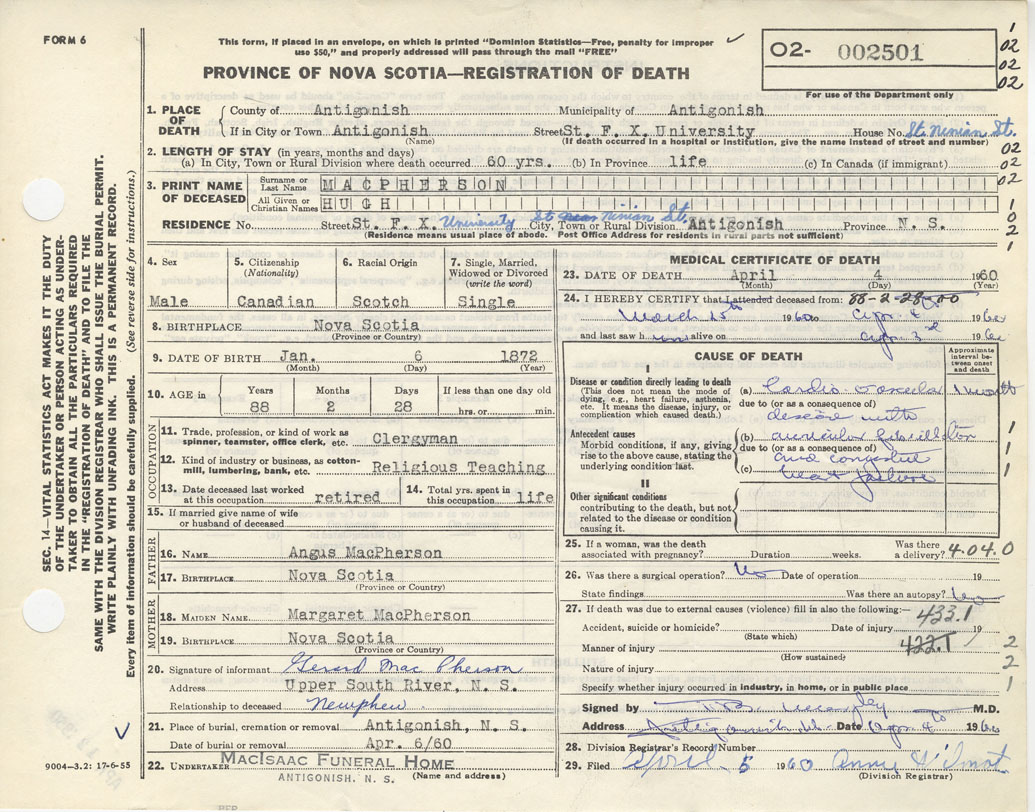 FORM 6
This form, if placed in an envelope, on which is printed "Dominion Statistics—Free, penalty for improper
use $50," and properly addressed will pass through the mail "FREE"
02- 002501
For use of the Department only
PROVINCE OF NOVA SCOTIA—REGISTRATION OF DEATH
1
02
02
02
1. PLACE OF DEATH
County of Antigonish Municipality of Antigonish
If in City or Town Antigonish Street St. F. X. University House No. St. Ninian St.
(Name) (If death occurred in a hospital or Institution, give the name instead of street and number)
02
2. LENGTH OF STAY (in years, months and days)
(a) In City, Town or Rural Division where death occurred 60 yrs. (b) In Province life (c) In Canada (if immigrant)
02
3. PRINT NAME OF DECEASED
Surname or Last Name MACPHERSON
02
All Given or Christian Names HUGH
1
0
2
1
RESIDENCE No. Street St. F. X. University St Ninian St. City, Town or Rural Division Antigonish Province N. S.
(Residence means usual place of abode. Post Office Address for residents in rural parts not sufficient)
4. Sex
Male
5. Citizenship
(Nationality)
Canadian
6. Racial Origin
Scotch
7. Single, Married,
Widowed or Divorced
(write the word)
Single
8. BIRTHPLACE Nova Scotia
(Province or Country)
9. DATE OF BIRTH Jan. 6 1872
(Month) (Day) (Year)
10. AGE in
Years Months Days If less than one day old
88 2 28 hrs. or min.
OCCUPATION
11. Trade, profession, or kind of work as
spinner, teamster, office clerk, etc. Clergyman
12. Kind of industry or business, as cotton-
mill, lumbering, bank, etc. Religious Teaching
13. Date deceased last worked
at this occupation retired
14. Total yrs. spent in
this occupation life
15. If married give name of wife
or husband of deceased
FATHER
16. NAME Angus MacPherson
17. BIRTHPLACE Nova Scotia
(Province or Country)
MOTHER
18. MAIDEN NAME Margaret MacPherson
19. BIRTHPLACE Nova Scotia
(Province or Country)
20. Signature of informant Gerard Mac Pherson
Address Upper South River, N. S.
Relationship to deceased Newphew
21. Place of burial, cremation or removal Antigonish, N. S.
Date of burial or removal Apr. 6/60
22. UNDERTAKER MACISAAC FUNERAL HOME
ANTIGONISH, N. S. (Name and address)
MEDICAL CERTIFICATE OF DEATH
23. DATE OF DEATH April 4 1960
(Month) (Day) (Year)
24. I HEREBY CERTIFY that I attended deceased from: 88-2-28-00
March 15th 1960 to Apr. 4 1960
and last saw him alive on Apr. 3rd 1960
CAUSE OF DEATH
Approximate
interval be-
tween onset
and death
I
Disease or condition directly leading to death
(This does not mean the mode of
dying, e.g., heart failure, asthenia,
etc. It means the disease, injury, or
complication which caused death.)
(a) Cardio vascular 1 month
due to (or as a consequence of)
disease with
Antecedent causes
Morbid conditions, if any, giving
rise to the above cause, stating the
underlying condition last.
(b) auricular fibrillation
due to (or as a consequence of)
and congestive
(c) heart failure
1
1
1
II
Other significant conditions
contributing to the death, but not
related to the disease or condition
causing it.
25. If a woman, was the death
associated with pregnancy? Duration weeks. Was there
a delivery? 4.04.0
26. Was there a surgical operation? No Date of operation 19
State findings Was there an autopsy? No
27. If death was due to external causes (violence) fill in also the following:— 433.1
Accident, suicide or homicide? Date of injury 19
(State which)
Manner of injury 422.1
(How sustained)
2
2
1
Nature of injury
Specify whether injury occurred in industry, in home, or in public place
Signed by M.D.
Address Antigonish Date Apr 4 1960
28. Division Registrar's Record Number
29. Filed April 5 1960
(Division Registrar)
SEC. 14—VITAL STATISTICS ACT MAKES IT THE DUTY
OF THE UNDERTAKER OR PERSON ACTING AS UNDER-
TAKER TO OBTAIN ALL THE PARTICULARS REQUIRED
IN THE "REGISTRATION OF DEATH" AND TO FILE THE
SAME WITH THE DIVISION REGISTRAR WHO SHALL ISSUE THE BURIAL PERMIT.
WRITE PLAINLY WITH UNFADING INK. THIS IS A PERMANENT RECORD.
Every item of information should be carefully supplied. (See reverse side for instructions.)
9004—3.2: 17-6-55